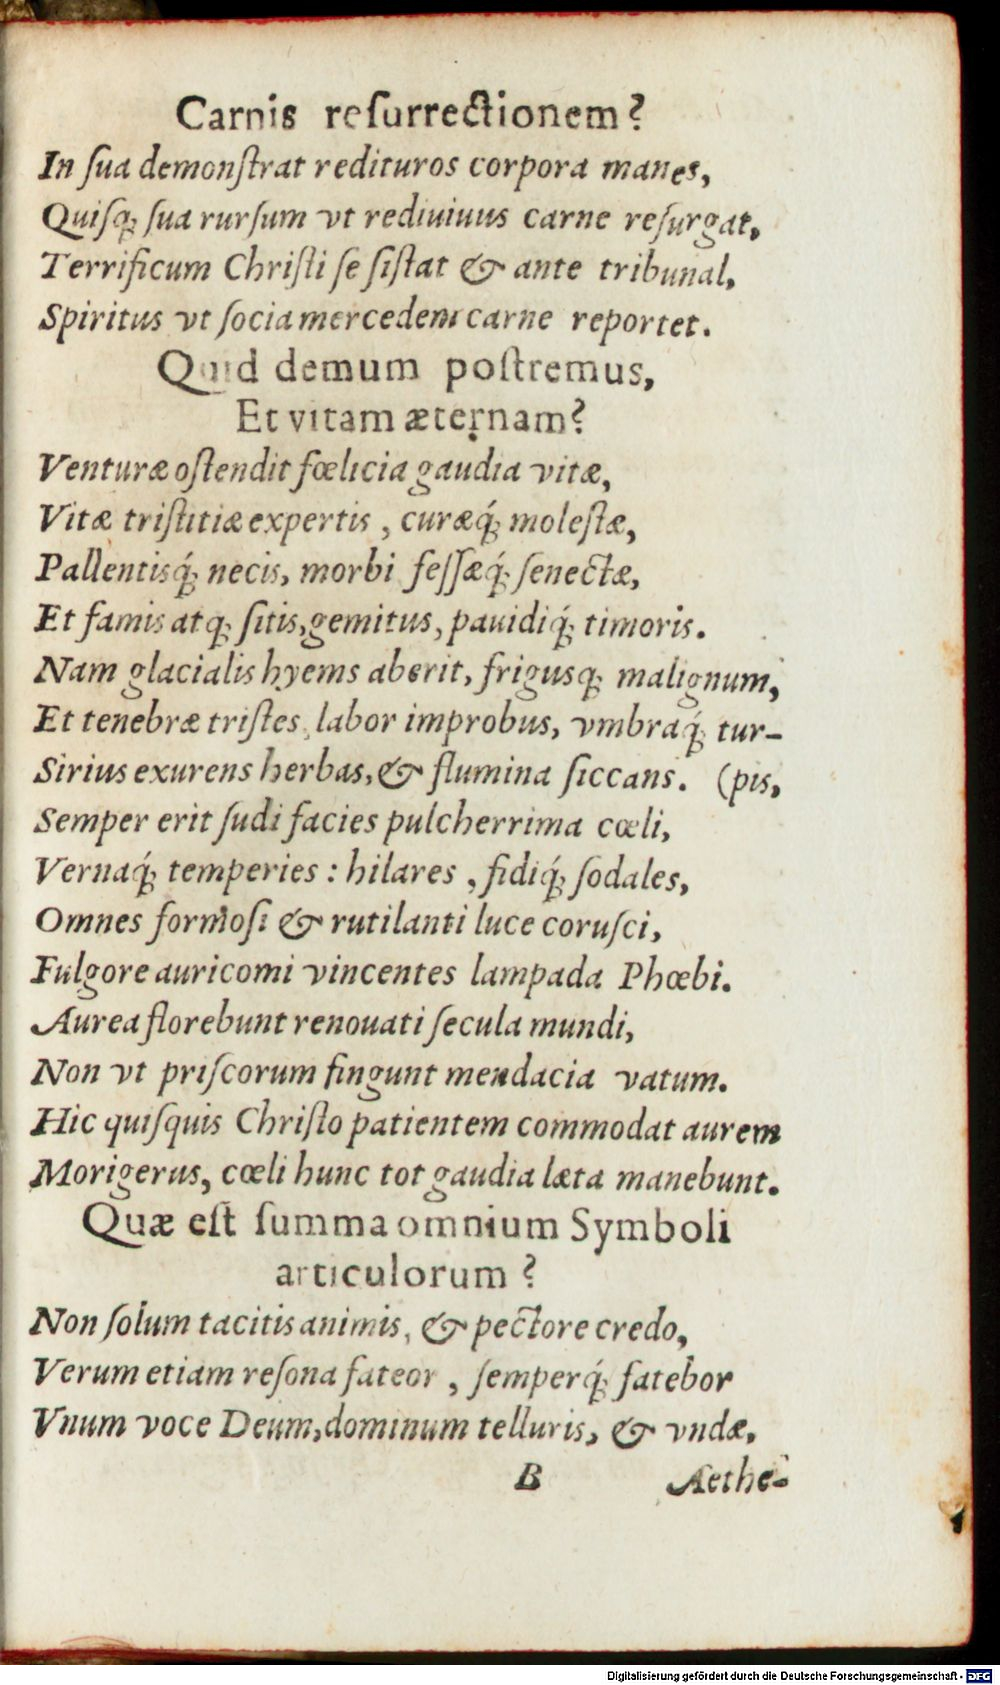 Carnis reſurrectionem?
In ſua demonſtrat redituros corpora manes,
Quiſq; ſua rurſum vt rediuiuus carne reſurgat,
Terrificum Chriſti ſe ſiſtat & ante tribunal,
Spiritus vt ſocia mercedem carne reportet.
Quid demum poſtremus,
Et vitam æternam?
Venturæ oſtendit fœlicia gaudia vitæ,
Vitæ triſtitiæ expertis, curæq́; moleſtæ,
Pallentisq́; necis, morbi feſſæq́; ſenectæ,
Et famis atq; ſitis, gemitus, pauidiq́; timoris.
Nam glacialis hyems aberit, frigusq; malignum,
Et tenebræ triſtes, labor improbus, vmbraq́; tur-
Sirius exurens herbas, & flumina ſiccans. (pis,
Semper erit ſudi facies pulcherrima cœli,
Vernaq́; temperies: hilares, fidiq́; ſodales,
Omnes formoſi & rutilanti luce coruſci,
Fulgore auricomi vincentes lampada Phœbi.
Aurea florebunt renouati ſecula mundi,
Non vt priſcorum fingunt mendacia vatum.
Hic quiſquis Chriſto patientem commodat aurem
Morigerus, cœli hunc tot gaudia læta manebunt.
Quæ eſt ſumma omnium Symboli
articulorum?
Non ſolum tacitis animis, & pectore credo,
Verum etiam reſona fateor, ſemperq́; fatebor
Vnum voce Deum, dominum telluris, & vndæ,
B Aethe-
Digitalisierung gefördert durch die Deutsche Forschungsgemeinschaft - DFG